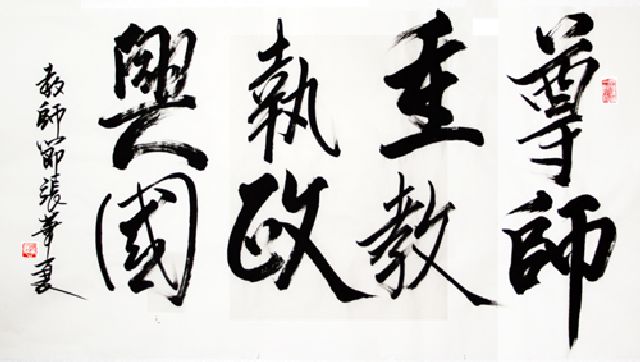 尊師
重教
執政
興國
教師節張華夏